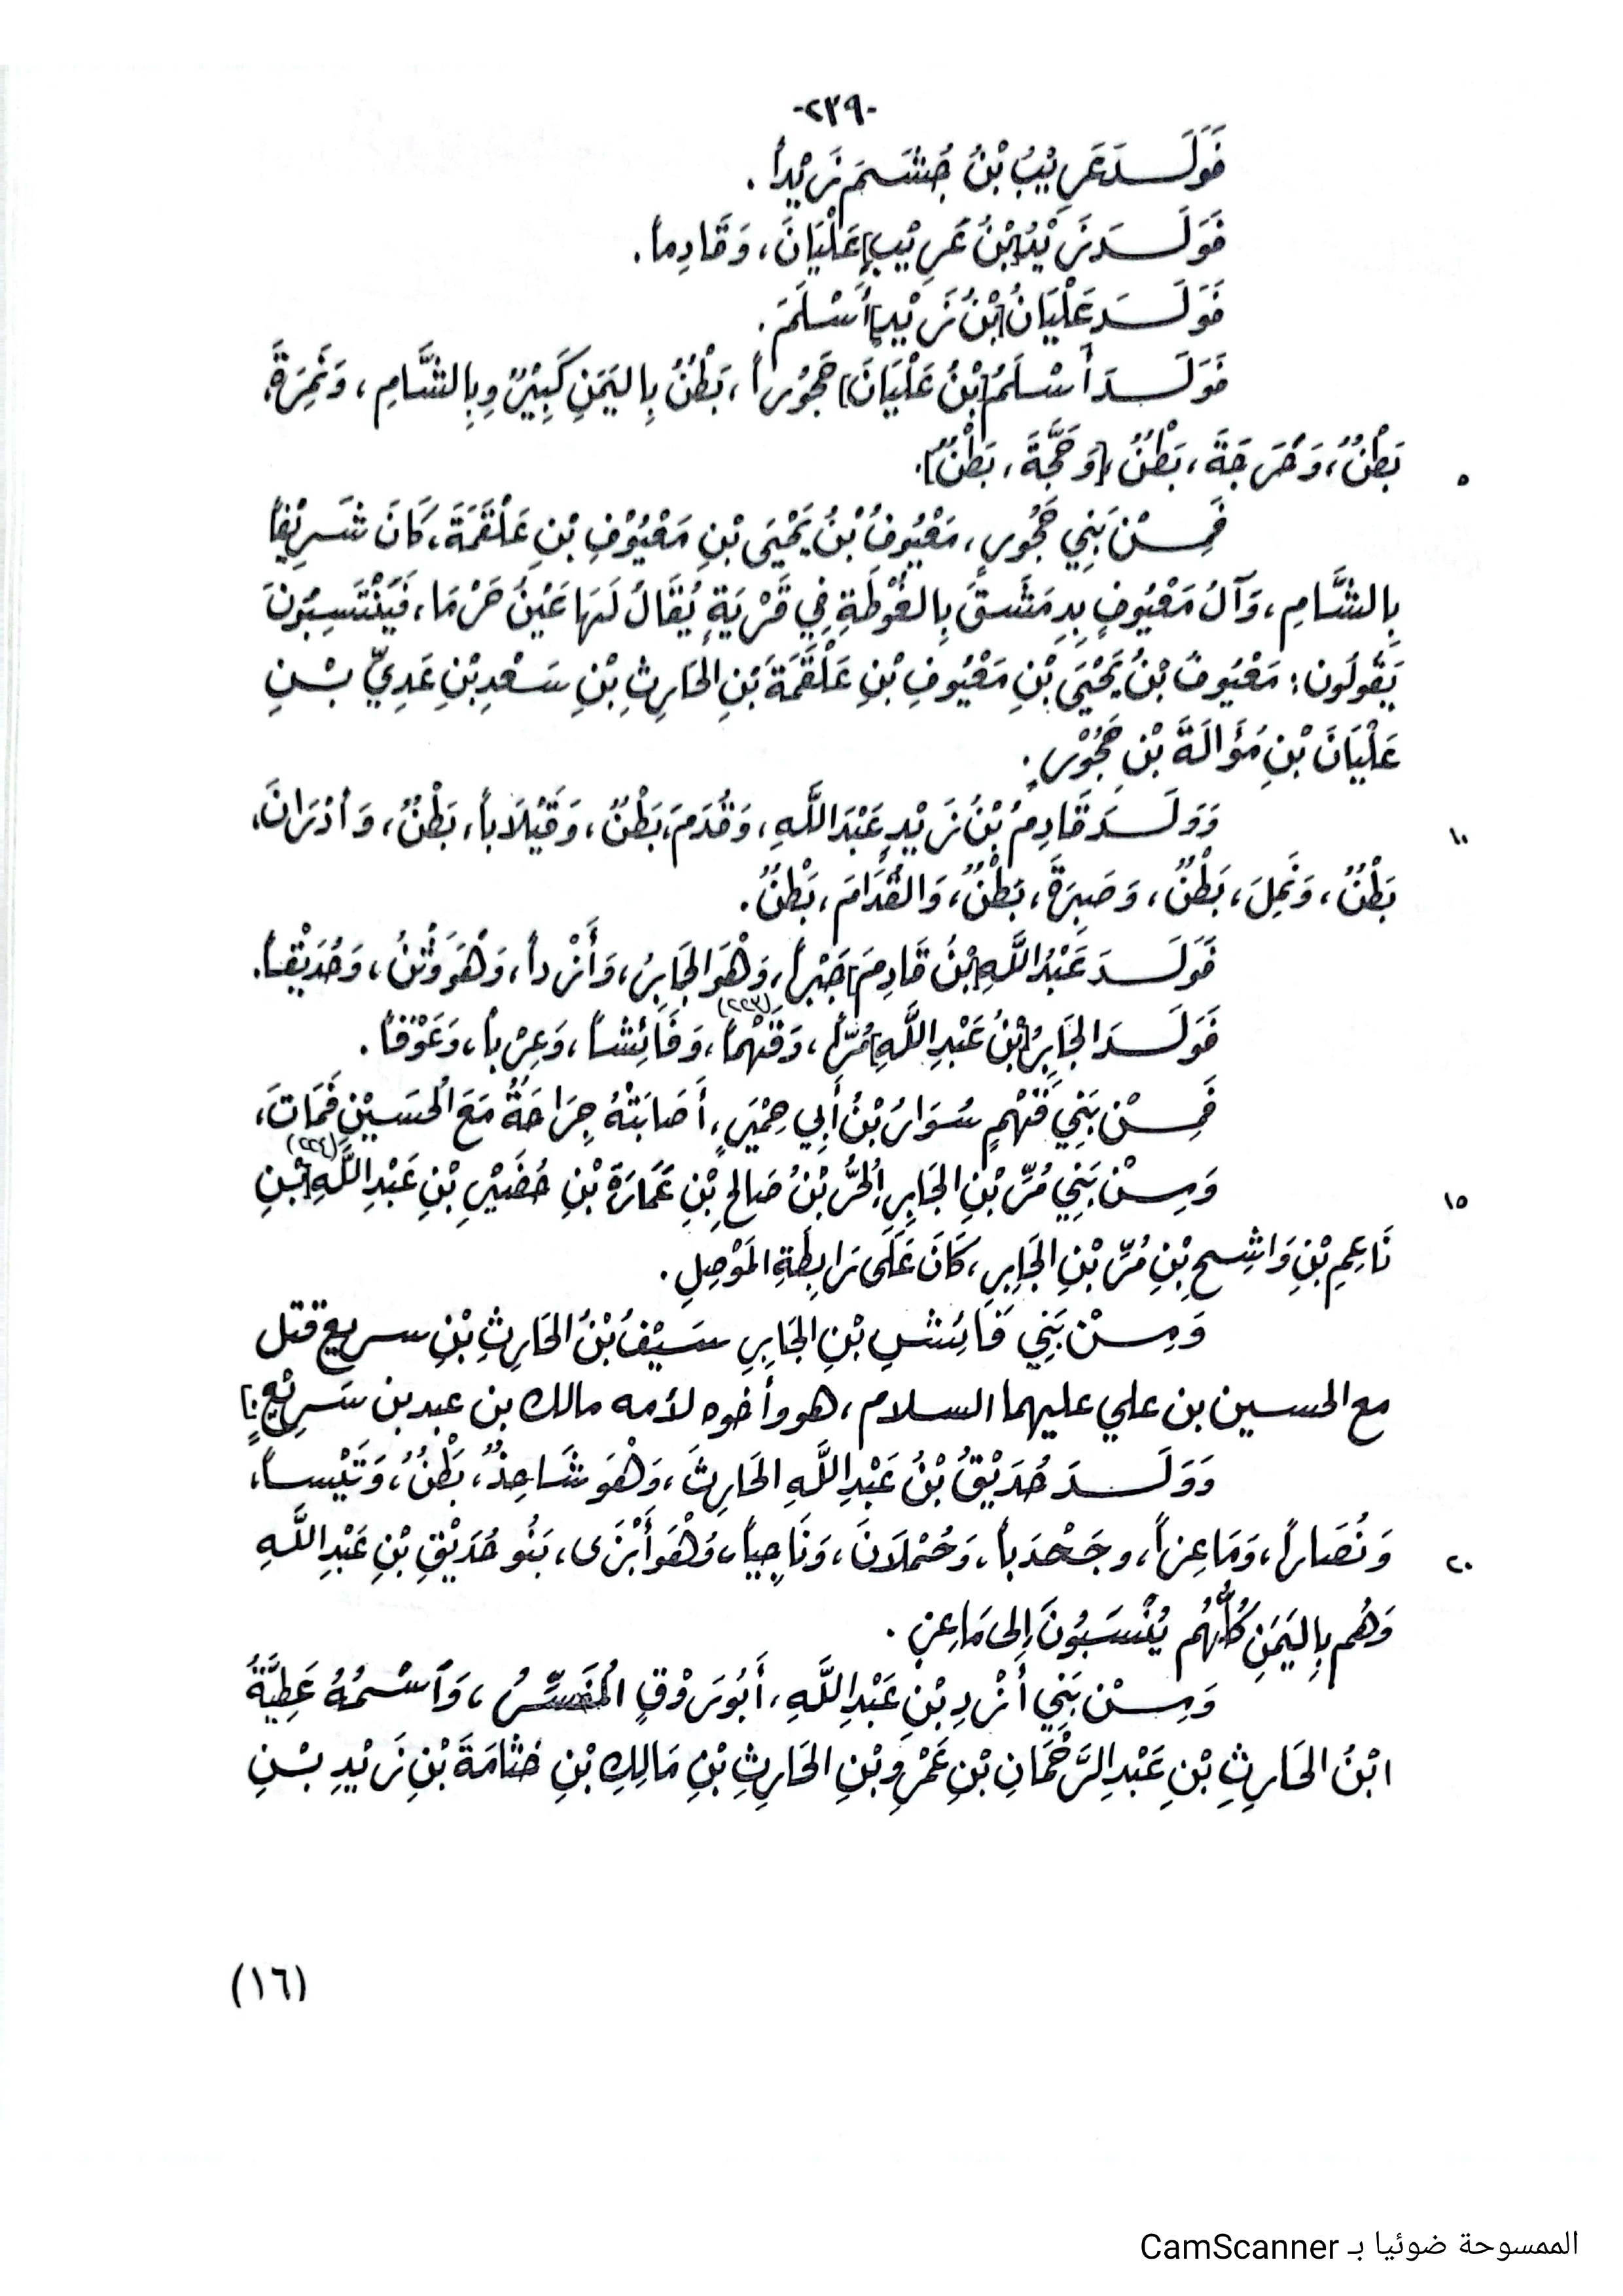 -٢٣٩-
فَوَلَـدَ عَرِيْبُ بْنُ جُشَـمَ زَيْداً .
فَوَلَـدَ زَيْدُ[بْنُ عَرِيْبٍ]عَلْيَانَ، وَقَادِماً.
فَوَلَـدَ عَلْيَانُ[بْنُ زَيْدٍ]أَسْلَمَ.
فَوَلَـدَ أَسْلَمُ[بْنُ عَلْيَانَ] حَجُوْراً، بَطْنٌ بِاليَمَنِ كَبِيْرٌ وبِالشَّامِ، وَنَمِرَةَ،
بَطْنٌ، وَحَرَجَةَ، بَطْنٌ،[وَحَجَّةَ، بَطْنٌ].
٥
فَمِـنْ بَنِي حَجُورٍ، مَعْيُوفُ بْنُ يَحْيَى بْنِ مَعْيُوْفِ بْنِ عَلْقَمَةَ، كَانَ شَـرِيْفاً
بِالشَّامِ، وَآلُ مَعْيُوفٍ بِدِمَشَقَ بِالغُوْطَةِ فِي قَرْيَةٍ يُقَالُ لَهَا عَيْنُ حَرْمَا، فَيَنْتَسِبُونَ
يَقُولُون: مَعْيُوفُ بْنُ يَحْيَى بْنِ مَعْيُوفِ بْنِ عَلْقَمَةَ بْنِ الحَارِثِ بْنِ سَـعْدِ بْنِ عَدِيِّ بْـنِ
عَلْيَانَ بْنِ مُؤَالَةَ بْنِ حَجُوْرٍ.
وَوَلَـدَ قَادِمُ بْنُ زَيْدٍ عَبْدَ اللَّهِ، وَقُدَمَ، بَطْنٌ، وَقَيْلَاباً، بَطْنٌ، وَأذْرَانَ،
١٠
بَطْنٌ، وَنَمِلَ، بَطْنٌ، وَصَبِرَةَ، بَطْنٌ، وَالقُدَامَ، بَطْنٌ.
فَوَلَـدَ عَبْدُ اللَّهِ[بْنُ قَادِمَ]جَبْراً، وَهْوَ الجَابِرُ، وَأَزْداً، وَهْوَ وَثَنُ، وَحُدَيْقاً.
فَوَلَـدَ الجَابِرُ[بْنُ عَبْدِ اللَّهِ]مُرّاً، وَفَهْماً(٢٢٣)، وَفَائِشاً، وَعِرْباً، وَعَوْفاً.
فَمِـنْ بَنِي فَهْمٍ سَوَارُ بْنُ أَبِي حِمْيَرٍ، أَصَابَتْهُ جِرَاحَةٌ مَعَ الحُسَيْنِ فَمَاتَ،
وَمِـنْ بَنِي مُرِّ بْنِ الجَابِرِ، الحُرُّ بْنُ صَالِحِ بْنِ عَمَارَةَ بْنِ حُضَيْرِ بْنِ عَبْدِ اللَّهِ(٢٢٤)[بْنِ
١٥
نَاعِمِ بْنِ وَاشِـحِ بْنِ مُرِّ بْنِ الجَابِرِ، كَانَ عَلَى رَابِطَةِ المَوْصِلِ.
وَمِـنْ بَنِي فَائِشِ بْنِ الجَابِرِ سَـيْفُ بْنُ الحَارِثِ بْنِ سـريع قتل
مع الحسين بن علي عليهما السلام، هو وأخوه لأمه مالك بن عبد بن سَـرِيْعٍ.]
وَوَلَـدَ حُدَيْقُ بْنُ عَبْدِ اللَّهِ الحَارِثَ، وَهْوَ شَاحِذٌ، بَطْنٌ، وَتَيْساً،
وَنُصَاراً، وَمَاعِزاً، وجَحْدَباً، وَحُمْلَانَ، وَنَاجِياً، وَهْوَ أَبْزَى، بَنُو حُدَيْقِ بْنِ عَبْدِ اللَّهِ
٢٠
وَهُم بِاليَمَنِ كُلُّهُم يُنْسَبُونَ إِلى مَاعِزٍ.
وَمِـنْ بَنِي أَزْدِ بْنِ عَبْدِ اللَّهِ، أَبُو رَوْقٍ المُفَسِّرُ، وَٱسْـمُهُ عَطِيَّةُ
ابْنُ الحَارِثِ بْنِ عَبْدِ الرَّحْمَانِ بْنِ عَمْرِو بْنِ الحَارِثِ بْنِ مَالِكِ بْنِ خثَامَةَ بْنِ زَيْدِ بْـنِ
(١٦)
الممسوحة ضوئيا بـ CamScanner